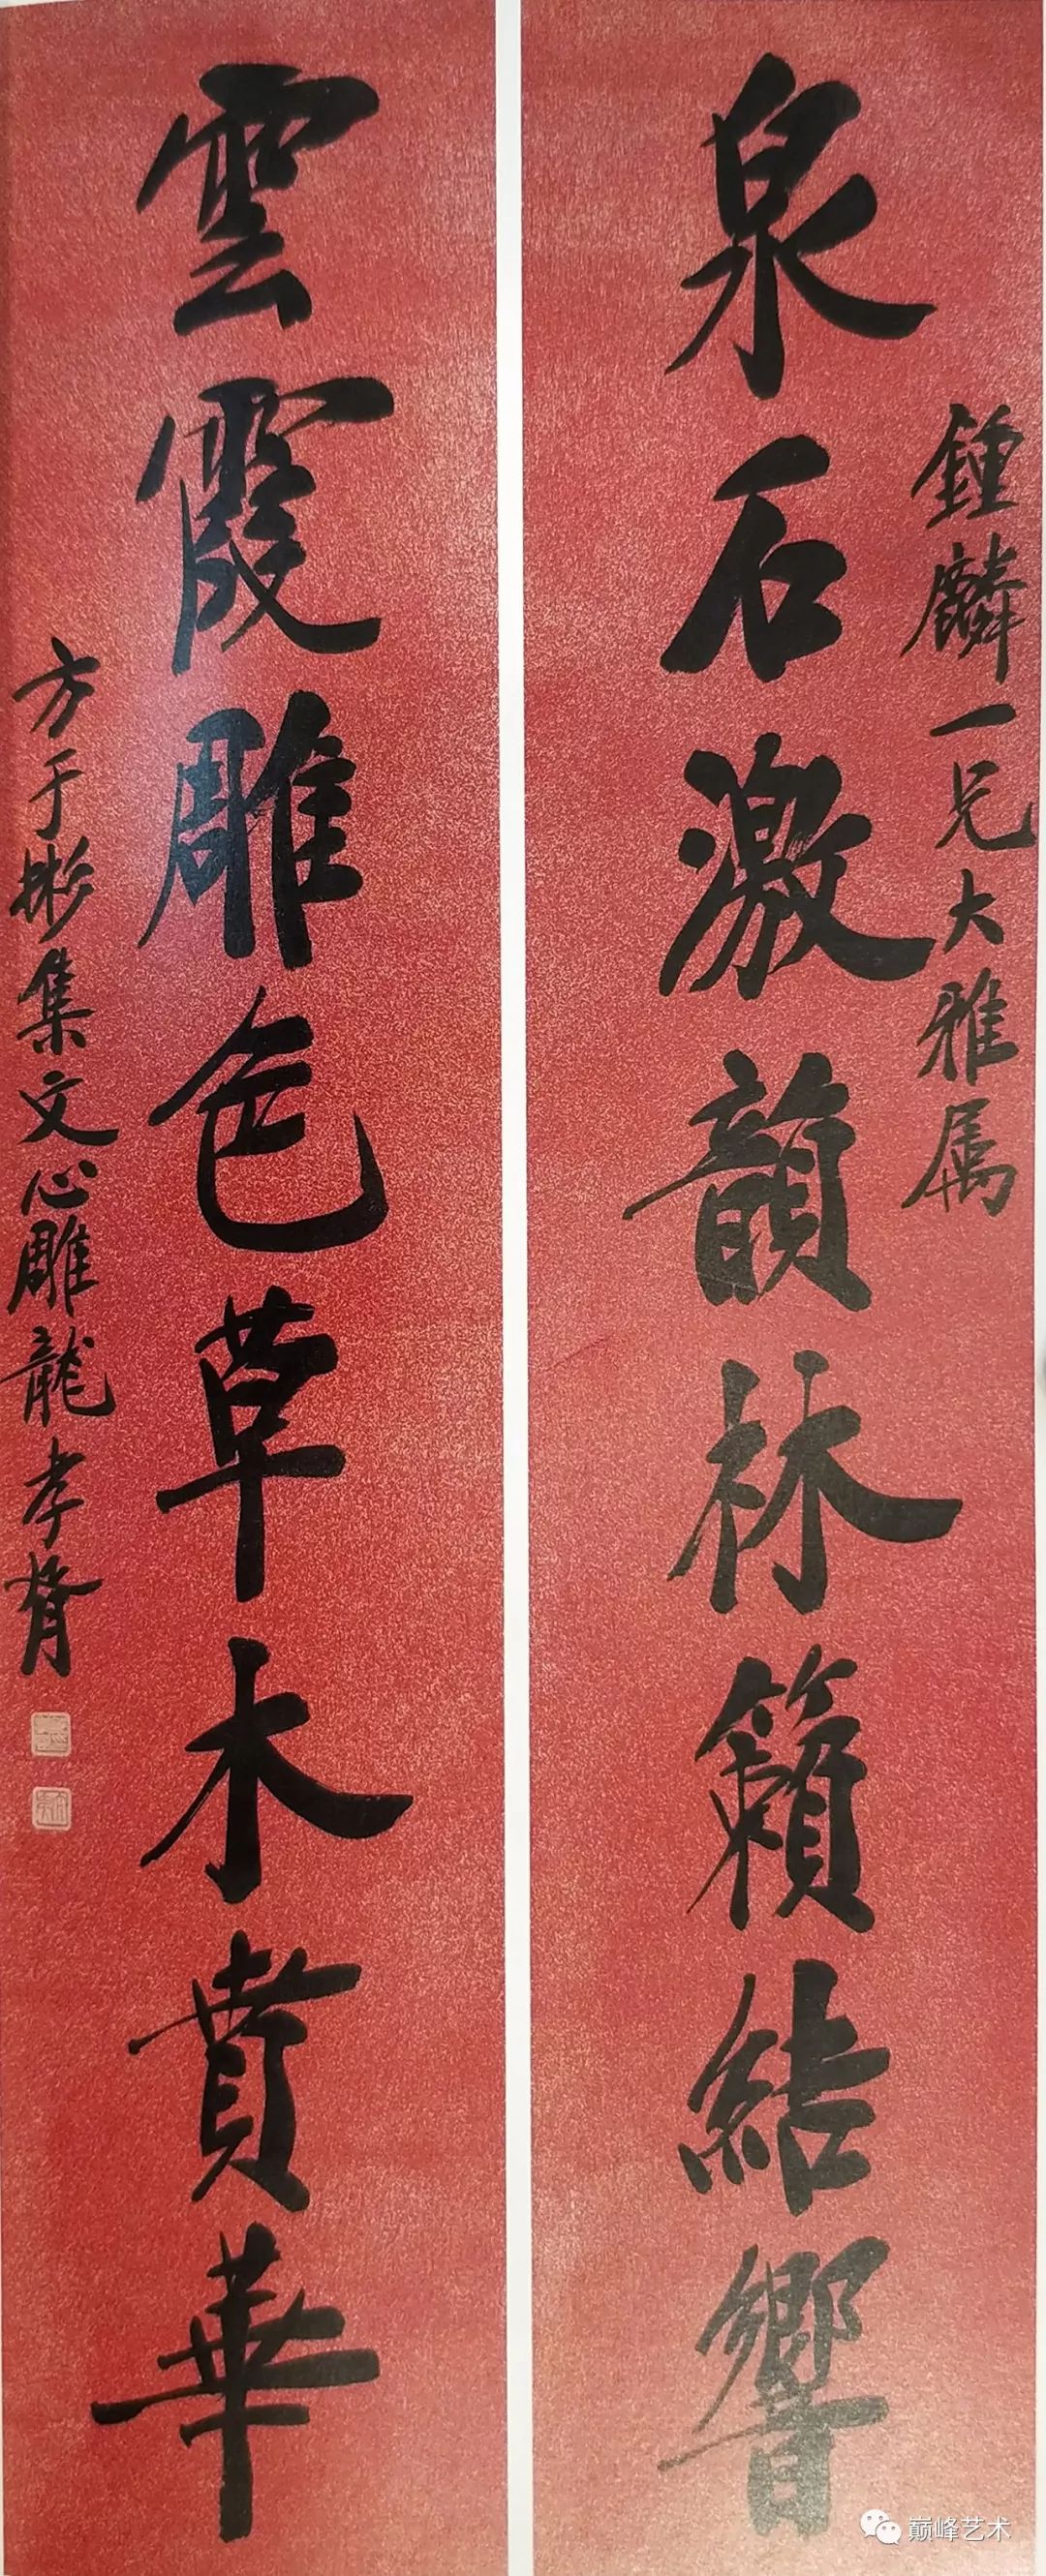 鍾麟一兄大雅属
泉石激韻林籟結響
雲霞雕色草木賁華
方于彬集文心雕龍孝胥
巅峰艺术